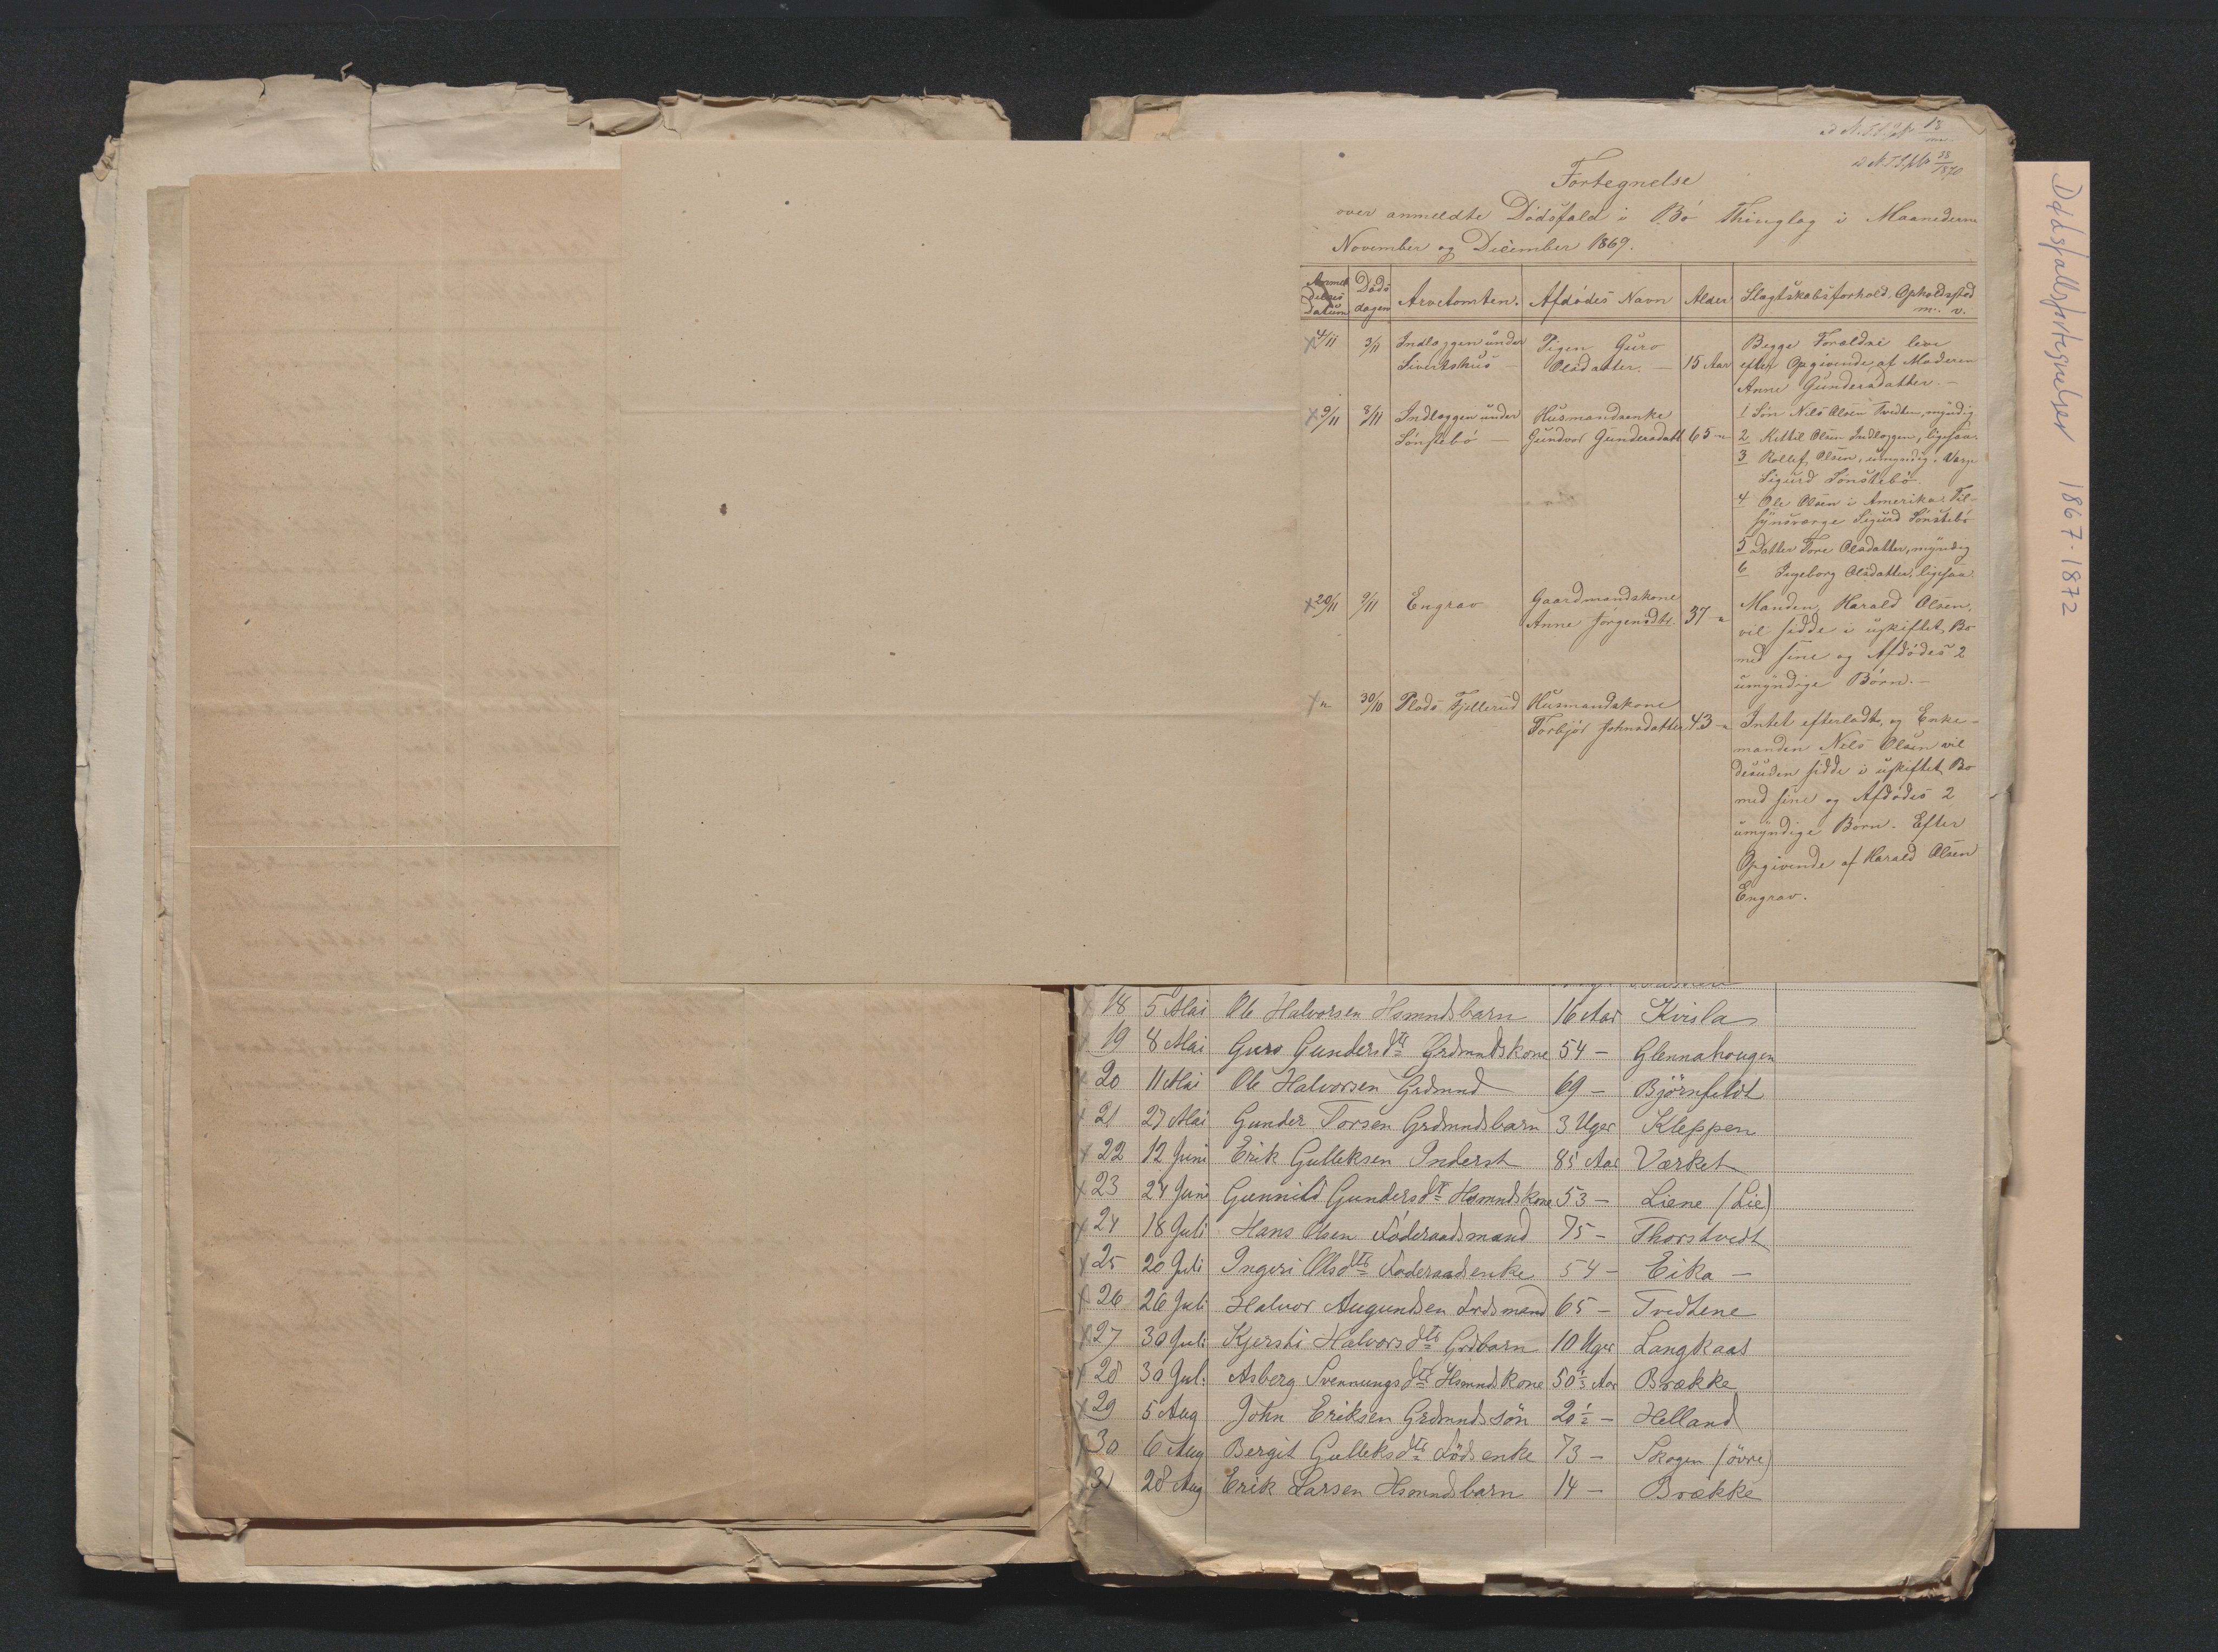 Fortegnelse
over anmeldte Dödsfald i Bö Thinglag i Maanederne
November og December 1869.
Anmel delses Datum | Döds dagen | Arvetomten. | Afdödes Navn | Alder | Slagtskabsforhold, Opholdssted m. v.
4/11 3/11 Indlæggen under Pigen Guro Begge Forældre leve
Sivertshus — Olsdatter. — 15 Aar efter Opgivende af Moderen
Anne Gundersdatter. —
9/11 8/11 Indlæggen under Husmandsenke 1 Sön Nils Olsen Tvedten, myndig
Sönstebö — Gundvor Gundersdatt 65 - 2 Kittil Olsen Indlæggen, ligesaa.
3 Rollef Olsen, umyndig. Værge
Sigurd Sönstebö.
4 Ole Olsen i Amerika. Til-
synsværge Sigurd Sönstebö
5 Datter Tone Olsdatter, myndig
6 Ingeborg Olsdatter, ligesaa.
20/11 9/11 Engrav Gaardmandskone Manden, Harald Olsen,
Anne Jörgensdtr. 37 - vil sidde i uskiftet Bo
med sine og Afdödes 2
umyndige Börn. —
30/10 Plads Fjellerud Husmandskone
Torbjör Johnsdatter 43 - Intet efterladt, og Enke-
manden Nils Olsen vil
desuden sidde i uskiftet Bo
med sine og Afdödes 2
umyndige Börn. Efter
Opgivende af Harald Olsen
Engrav.
18 5 Mai Ole Halvorsen Hsmndsbarn 16 Aar Kvisla
19 8 Mai Guro Gundersdtr Grdmndskone 54 — Glennahougen
20 11 Mai Ole Halvorsen Grdmnd 69 — Björnfeldt
21 27 Mai Gunder Torsen Grdmndsbarn 3 Uger Kleppen
22 12 Juni Erik Gulleksen Inderst 85 Aar Værket
23 24 Juni Gunnild Gundersdtr Hsmndskone 53 — Liene (Lie)
24 18 Juli Hans Olsen Föderaadsmand 75 — Thorstvedt
25 20 Juli Ingeri Olsdtr Föderaadsenke 54 — Eika —
26 26 Juli Halvor Augundsen Frdsmand 65 — Tvedtene
27 30 Juli Kjersti Halvorsdtr Grdbarn 10 Uger Langkaas
28 30 Jul. Asberg Svennungsdtr Hsmndskone 50 1/3 Aar Brække
29 5 Aug John Eriksen Grdmndssön 20 1/2 — Helland
30 6 Aug Bergit Gulleksdtr Födsenke 73 — Skogen (övre)
31 28 Aug Erik Larsen Hsmndsbarn 14 — Brække
Dødsfallsfortegnelser 1867-1872